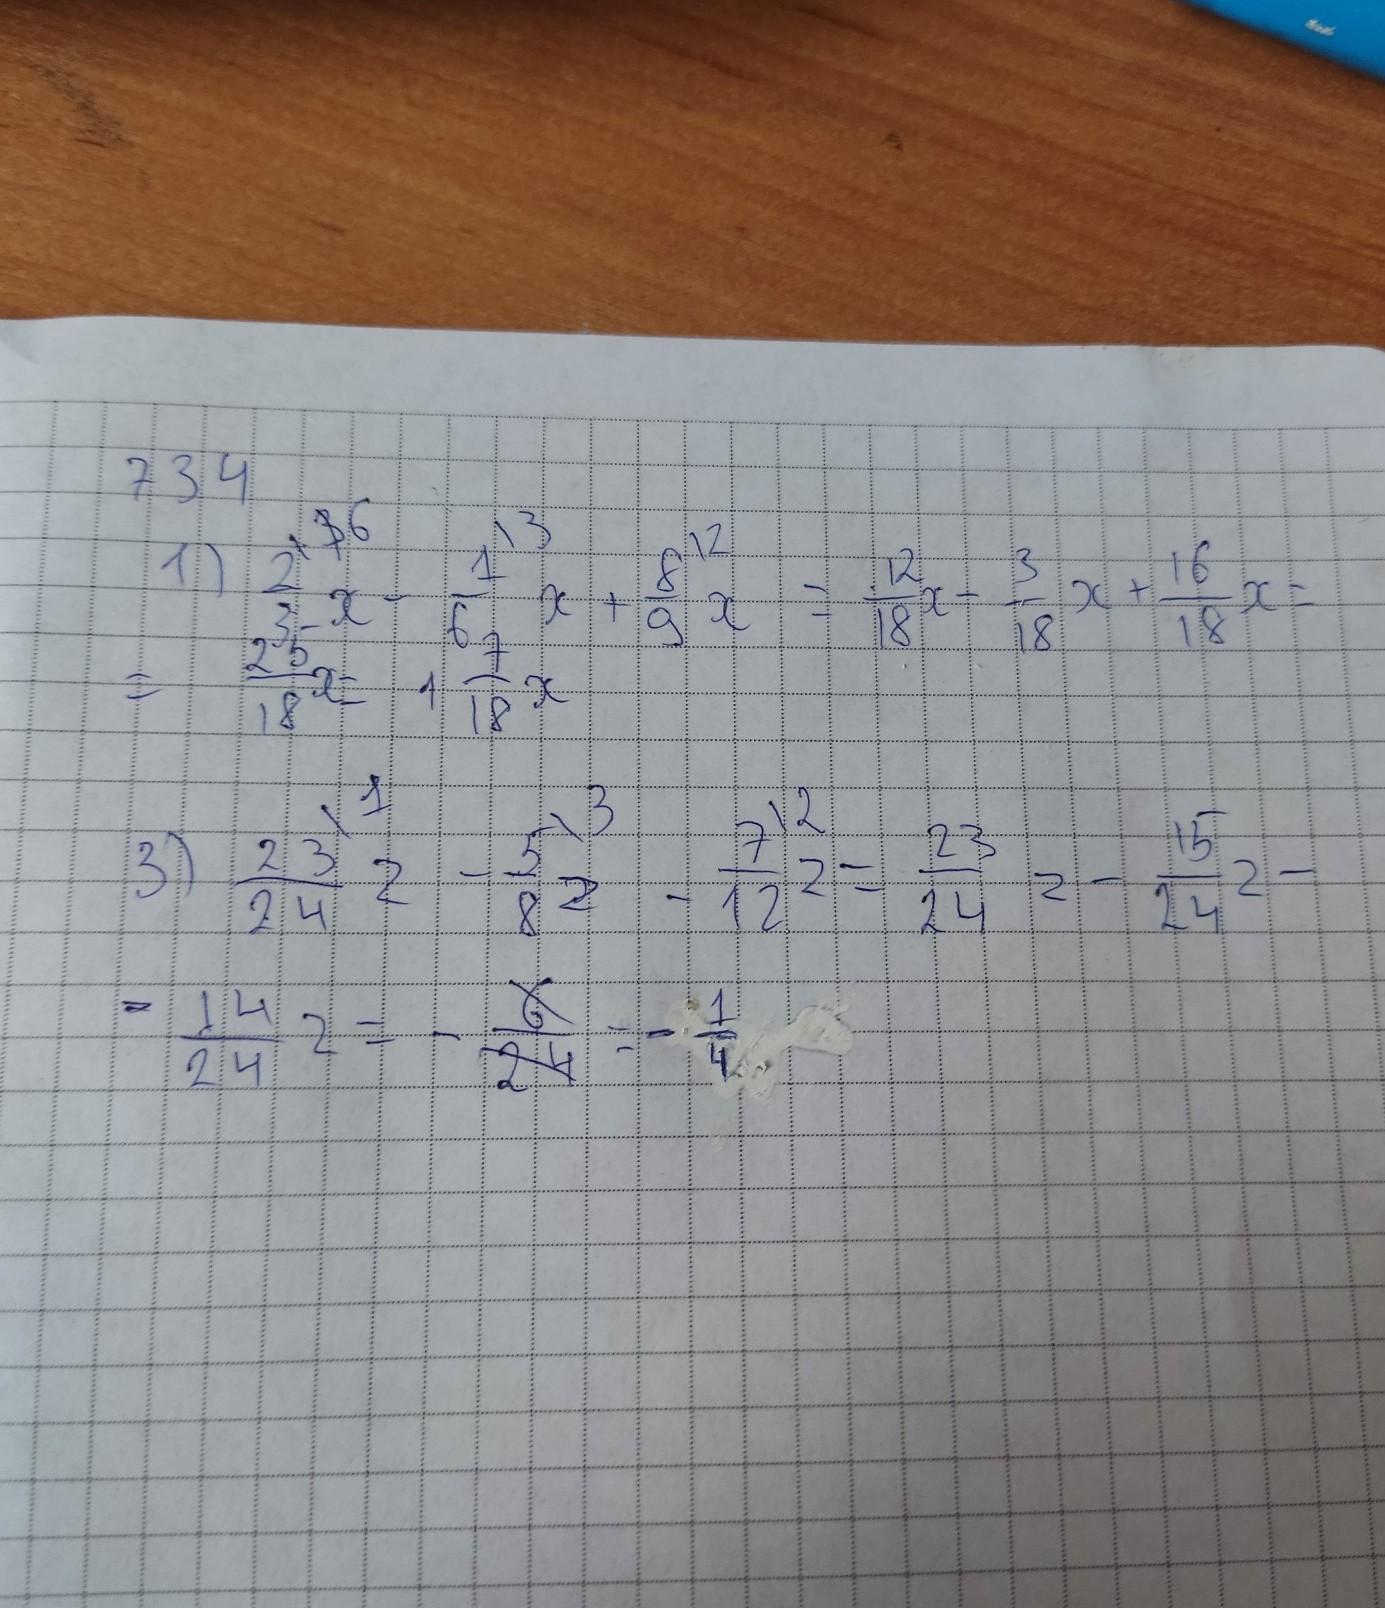 734
1) 2/3 \6 x - 1/6 \3 x + 8/9 \2 x = 12/18 x - 3/18 x + 16/18 x =
= 25/18 x = 1 7/18 x
3) 23/24 \1 z - 5/8 \3 z - 7/12 \2 z = 23/24 z - 15/24 z -
- 14/24 z = - 6/24 = - 1/4